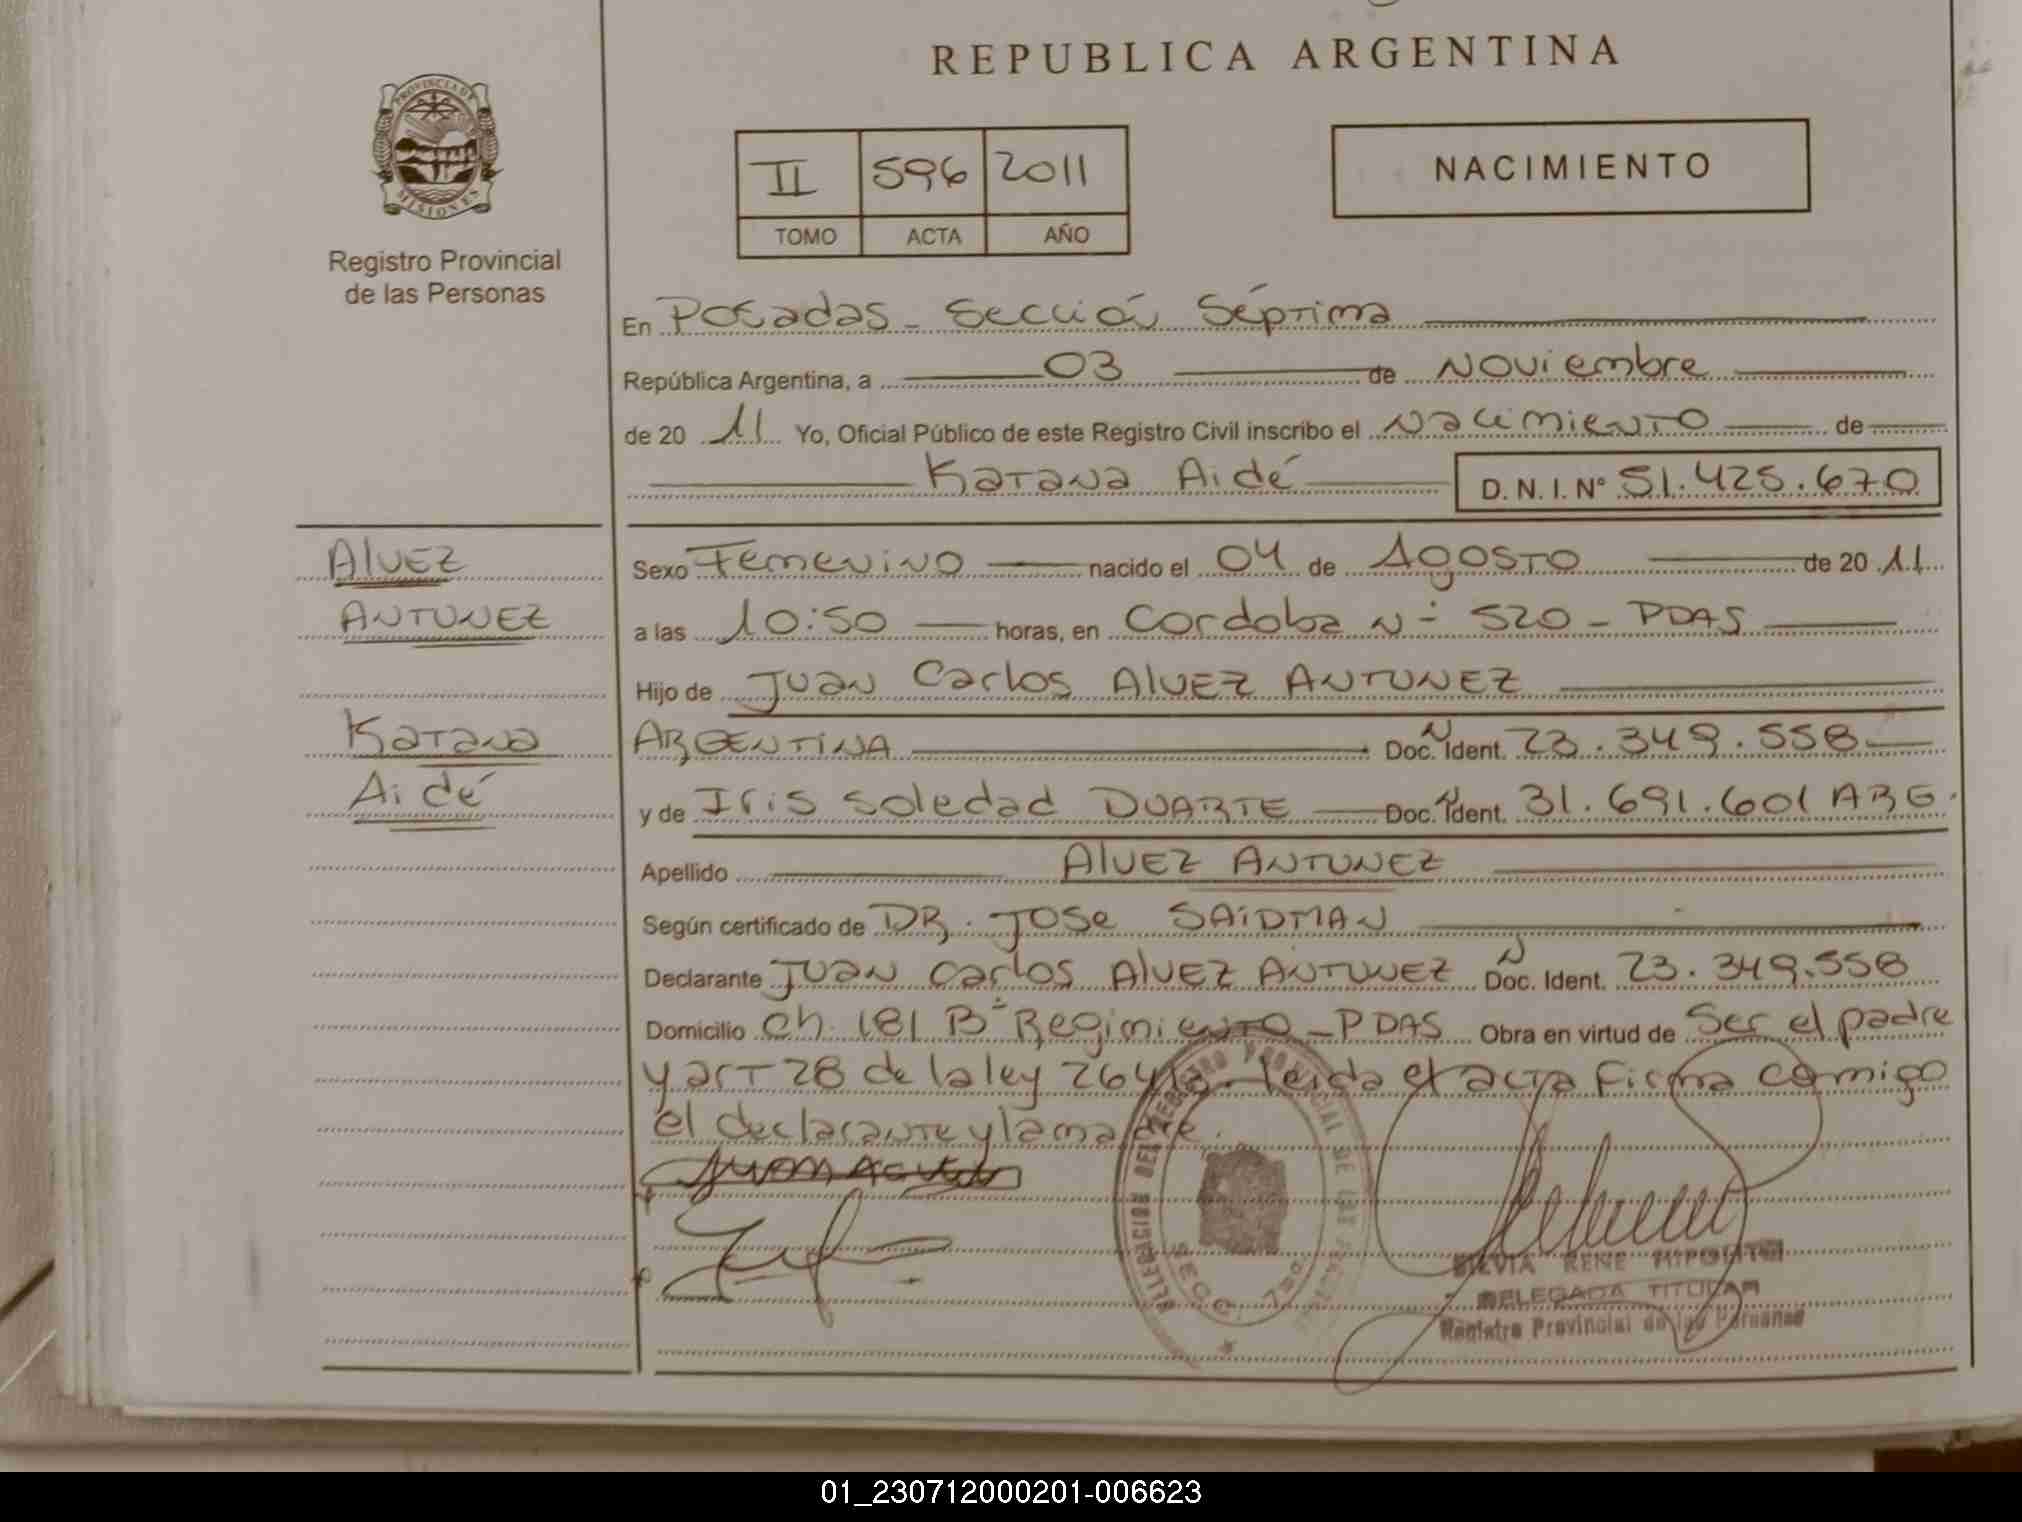 REPUBLICA ARGENTINA
PROVINCIA DE
MISIONES
Registro Provincial
de las Personas
II 596 2011
TOMO ACTA AÑO
NACIMIENTO
En Posadas - Sección Séptima
República Argentina, a 03 de Noviembre
de 20 11 Yo, Oficial Público de este Registro Civil inscribo el Nacimiento de
Katana Aidé D. N. I. N° 51.425.670
Alvez
Antunez
Katana
Aidé
Sexo Femenino nacido el 04 de Agosto de 20 11
a las 10:50 horas, en Cordoba N° 520 - PDAS
Hijo de Juan Carlos Alvez Antunez
Argentina Doc. N Ident. 23.349.558
y de Iris Soledad Duarte Doc. N Ident. 31.691.601 ARG.
Apellido Alvez Antunez
Según certificado de DR. Jose Saidman
Declarante Juan Carlos Alvez Antunez N Doc. Ident. 23.349.558
Domicilio Ch. 181 B° Regimiento - PDAS Obra en virtud de Ser el padre
y art 28 de la ley 26413. Leida el acta firma comigo
el declarante y la madre.
SILVIA RENE HIPOLITO
DELEGADA TITULAR
Registro Provincial de las Personas
01_230712000201-006623